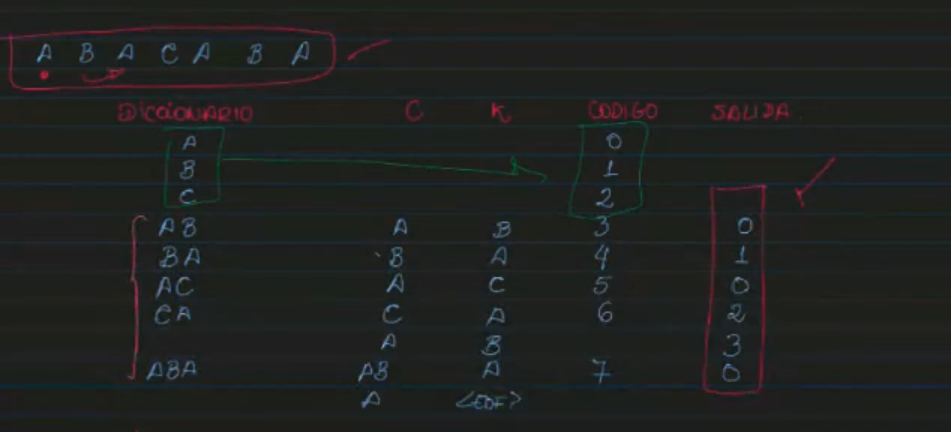 A B A C A B A
DICCIONARIO C K CODIGO SALIDA
A 0
B 1
C 2
AB A B 3 0
BA B A 4 1
AC A C 5 0
CA C A 6 2
A B 3
ABA AB A 7 0
A <EOF>